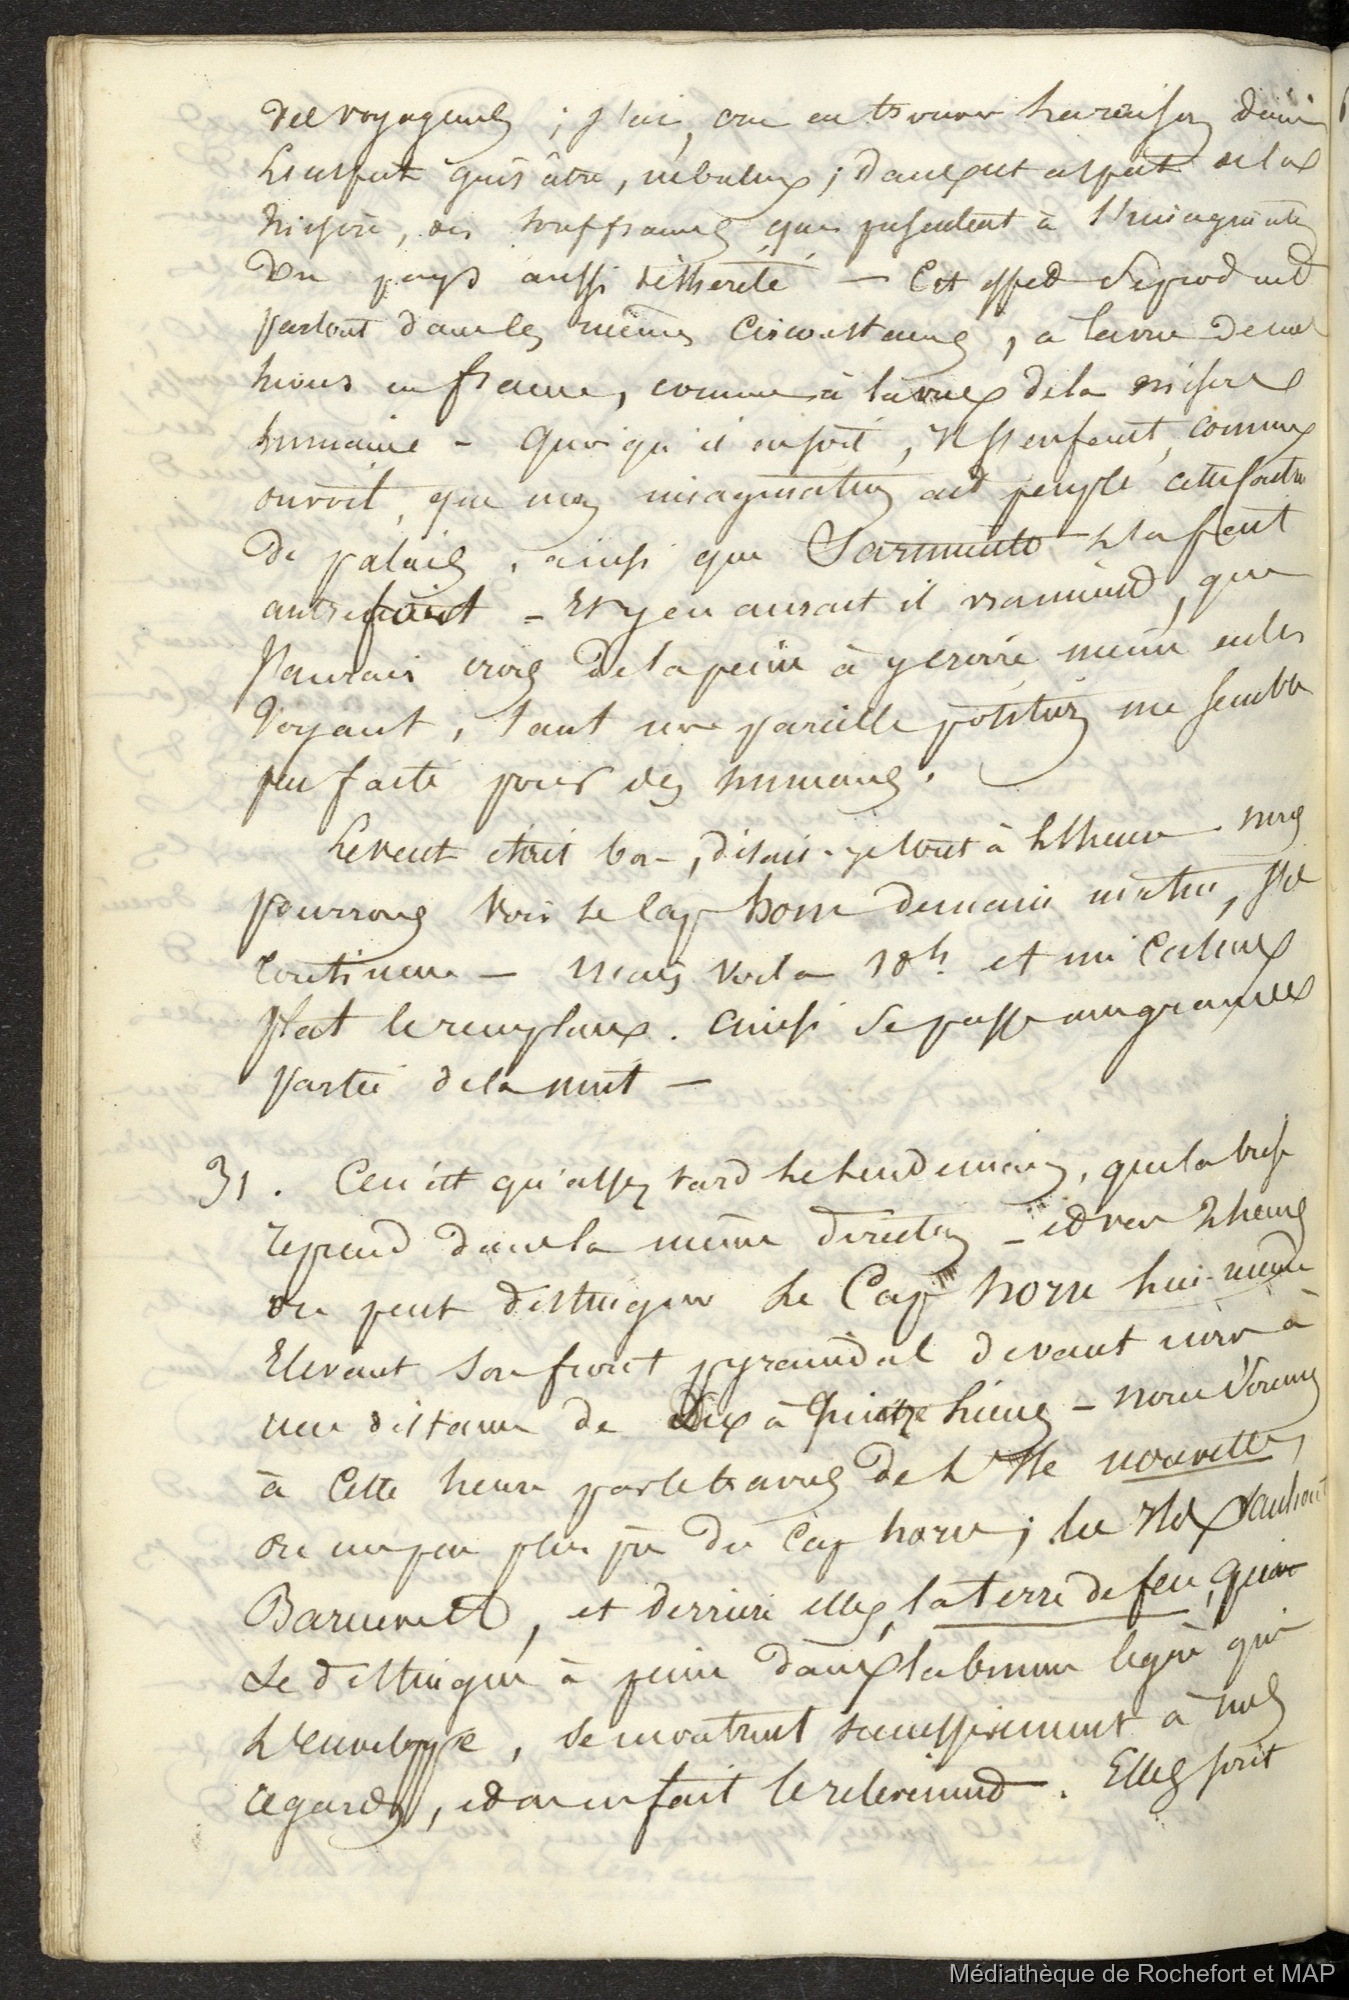 des voyageurs ; j'ai cru en trouver la raison dans
l'aspect grisâtre, nébuleux ; dans cet aspect de la
misère, des souffrances que présentent à l'imagination
un pays aussi déshérité — Cet effet se produit
partout dans les mêmes circonstances, à la vue de
en france, comme à la vue de la misère
humaine — Quoi qu'il en soit, il s'en faut, comme
on voit, que mon imagination ait peuplé cette contrée
de palais, ainsi que Sarmiento l'a fait
autrefois — Et y en aurait il vraiment, que
j'aurais crois de la peine à y croire même en les
voyant, tant une pareille position me semble
peu faite pour des humains.
Le vent était bon, disais-je tout à l'heure. nous
pourrons voir le Cap horn demain matin, s'il
continue — mais voila 10h. et un calme
plat le remplace. ainsi se passe une grande
partie de la nuit —
31. Ce n'est qu'assez tard le lendemain, que la brise
reprend dans la même direction — et vers 2 heures
on peut distinguer le Cap horn lui-même
Elevant son front pyramidal devant nous à
une distance de dix à quinze lieues — nous sommes
à cette heure par le travers de l'Ile nouvelle,
ou un peu plus près du Cap horn ; les Iles
Barnevelt, et derrière elles, la terre de feu, qui
se distingue à peine dans la brume légère qui
l'enveloppe, se montrent successivement à nos
regards, et on en fait le relèvement. Elles sont
Médiathèque de Rochefort et MAP